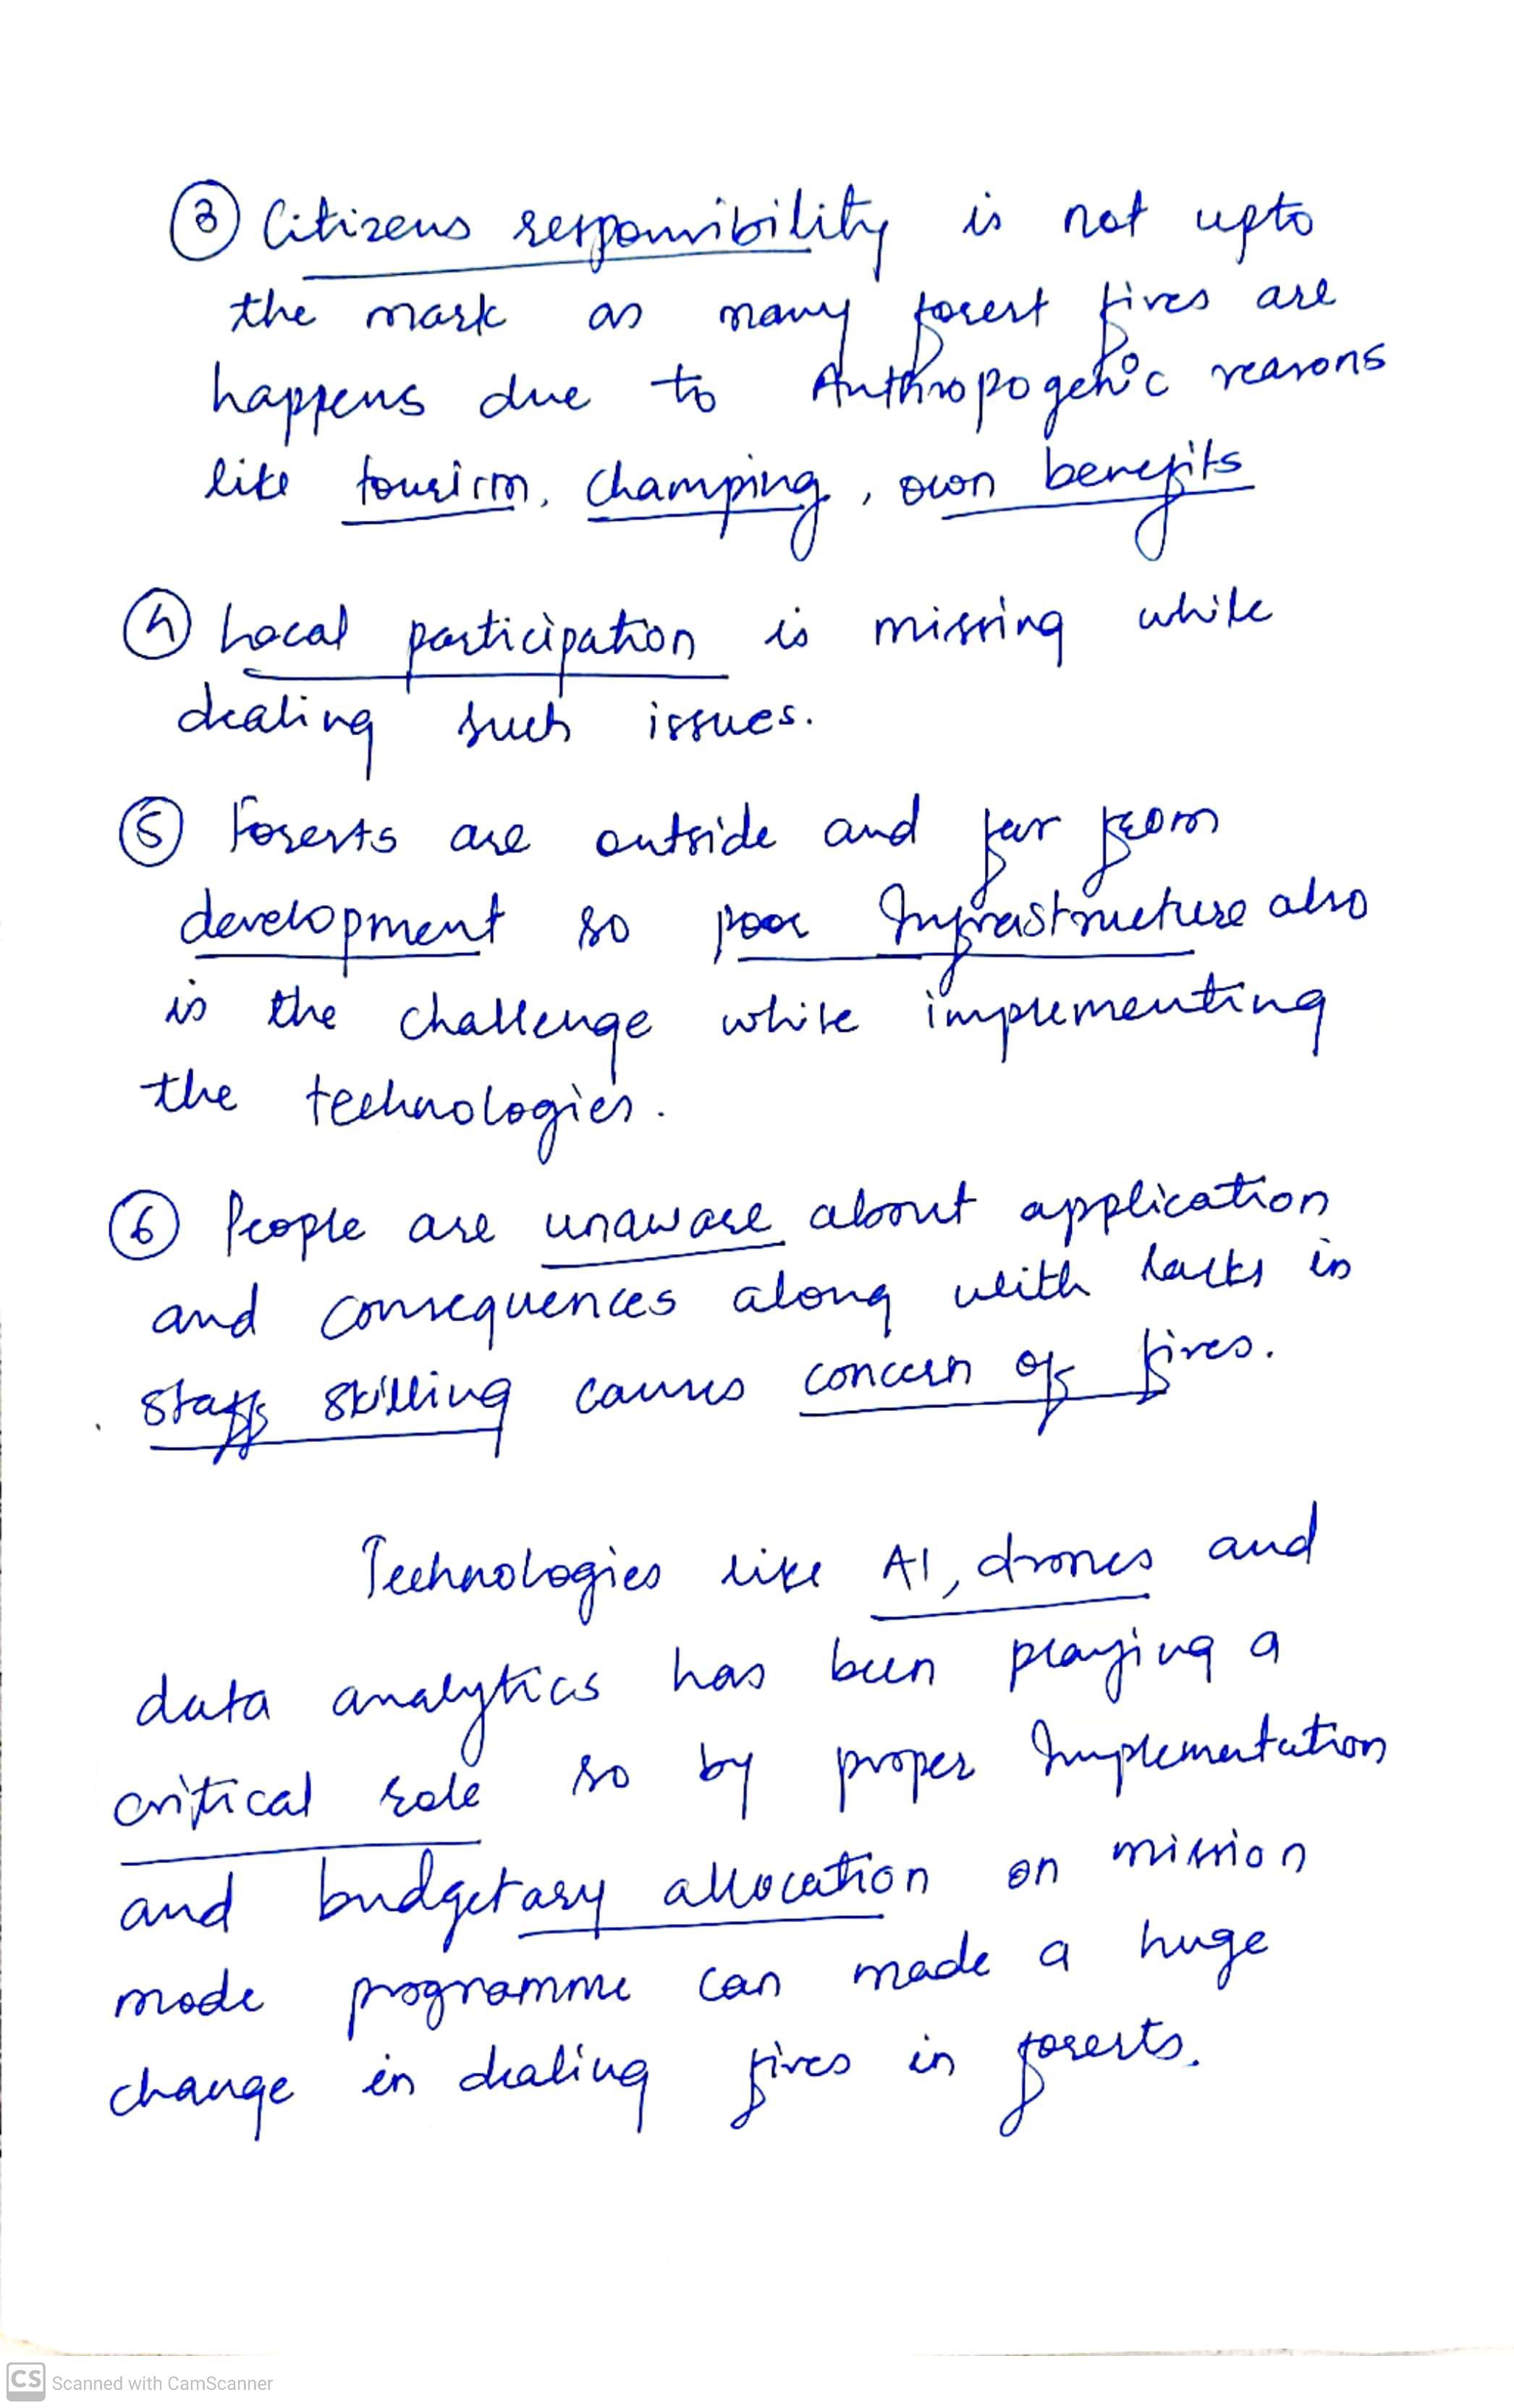 ③ Citizens responsibility is not upto
the mark as many forest fires are
happens due to Anthropogenic reasons
like tourism, champing, own benefits
④ Local participation is missing while
dealing such issues.
⑤ Forests are outside and far from
development so poor Infrastructure also
is the challenge while implementing
the technologies.
⑥ People are unaware about application
and consequences along with lacks in
staff skilling causes concern of fires.
Technologies like AI, drones and
data analytics has been playing a
critical role so by proper Implementation
and budgetary allocation on mission
mode programme can made a huge
change in dealing fires in forests.
CS Scanned with CamScanner